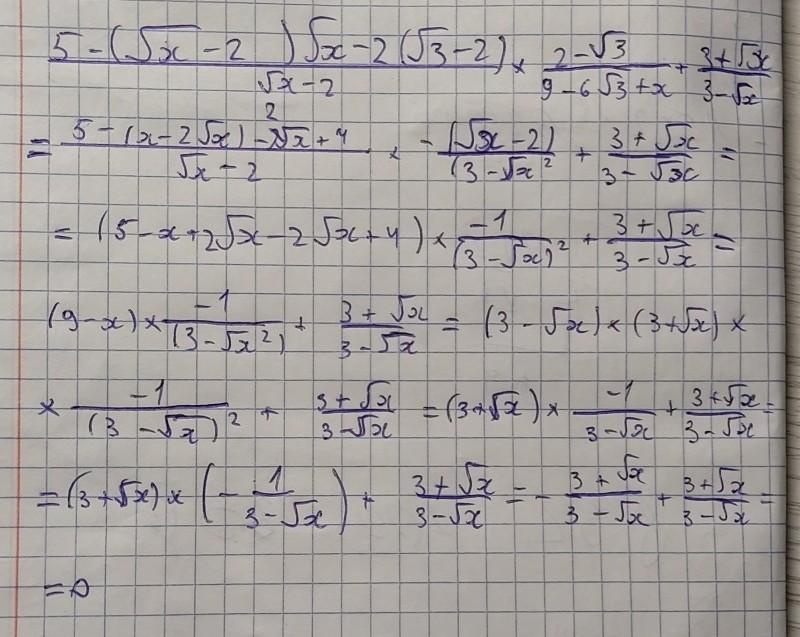 (5 - (√x - 2) √x - 2(√3 - 2))/(√x - 2) × (2 - √3)/(9 - 6√3 + x) + (3 + √x)/(3 - √x)
= (5 - (x - 2√x) - 2√x + 4)/(√x - 2) × (-(√x - 2))/((3 - √x ² + (3 + √x)/(3 - √x) =
= (5 - x + 2√x - 2√x + 4) × (-1)/((3 - √x)²) + (3 + √x)/(3 - √x) =
(9 - x) × (-1)/((3 - √x²)) + (3 + √x)/(3 - √x) = (3 - √x) × (3 + √x) ×
× (-1)/((3 - √x)²) + (3 + √x)/(3 - √x) = (3 + √x) × (-1)/(3 - √x) + (3 + √x)/(3 - √x) =
= (3 + √x) × (- 1/(3 - √x)) + (3 + √x)/(3 - √x) = - (3 + √x)/(3 - √x) + (3 + √x)/(3 - √x) =
= 0